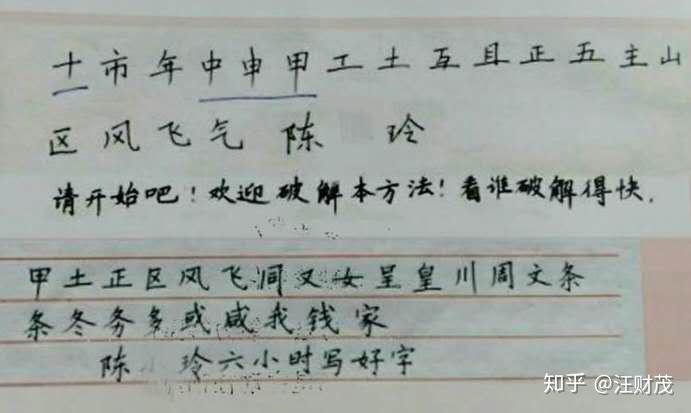 十市年中申甲工土互且正五主山
区风飞气 陈 玲
请开始吧!欢迎破解本方法!看谁破解得快.
甲土正区风飞洞又女呈皇川周文条
条冬务多或咸我钱家
陈 玲六小时写好字
知乎 @汪财茂